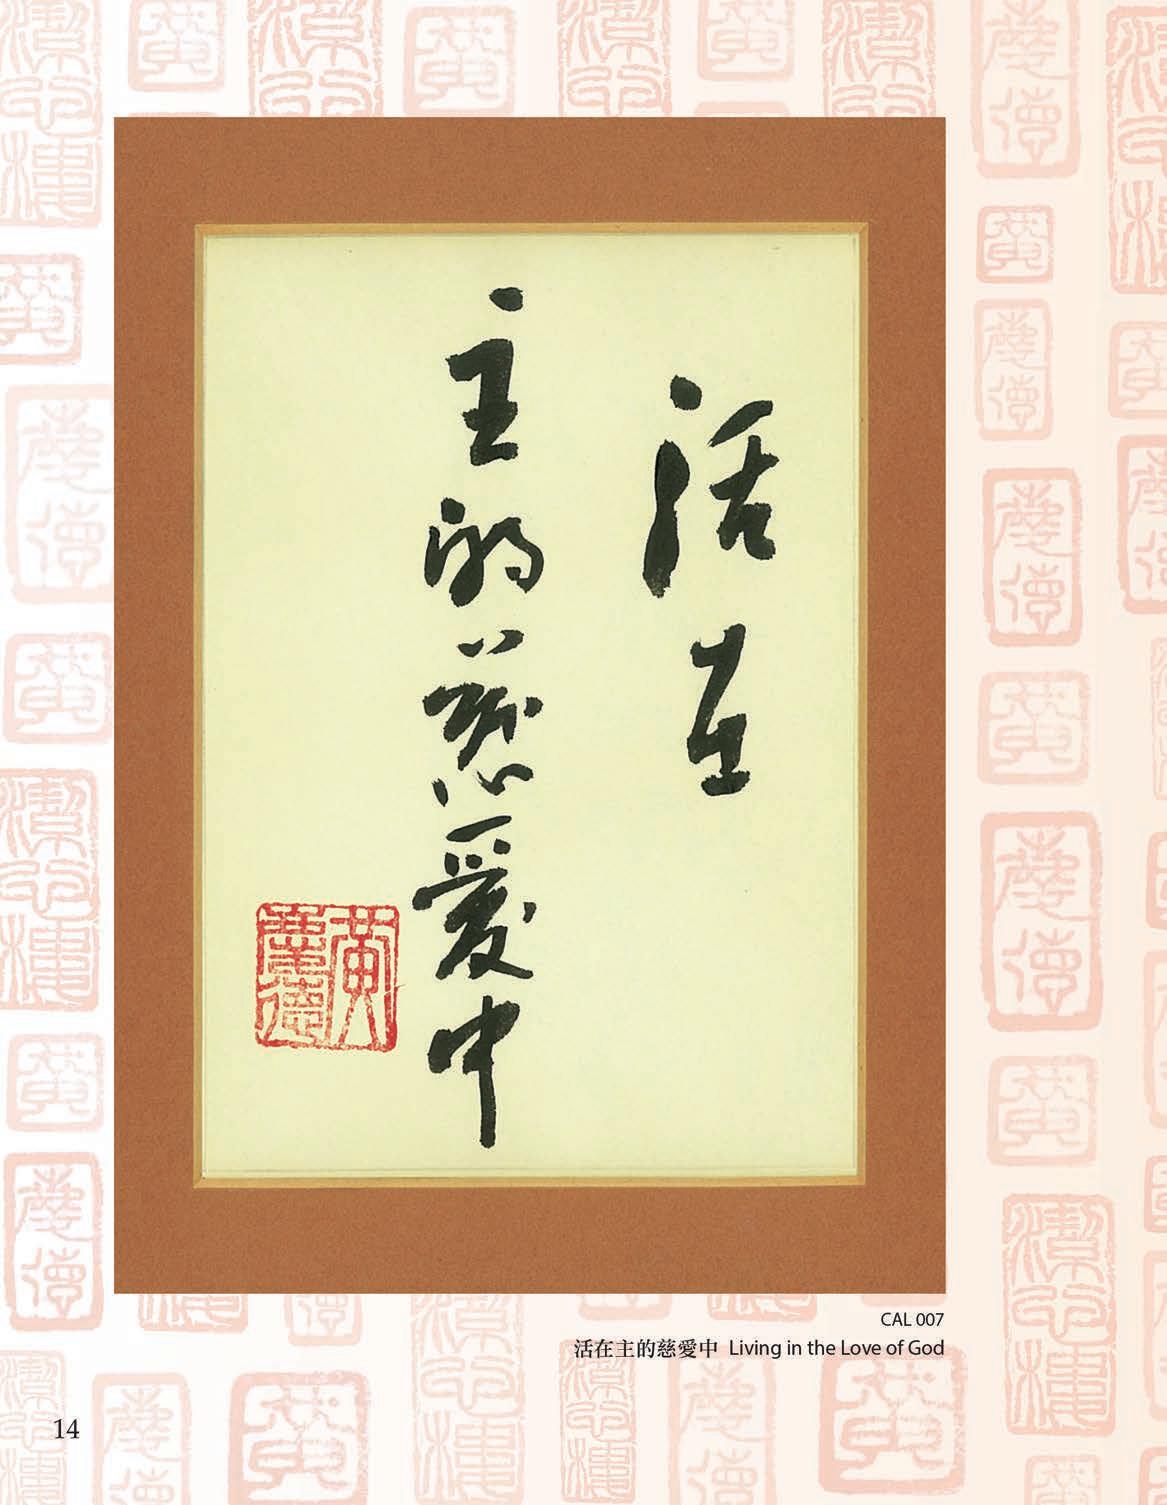 活在
主的慈愛中
黃
慶德
CAL 007
活在主的慈愛中 Living in the Love of God
14